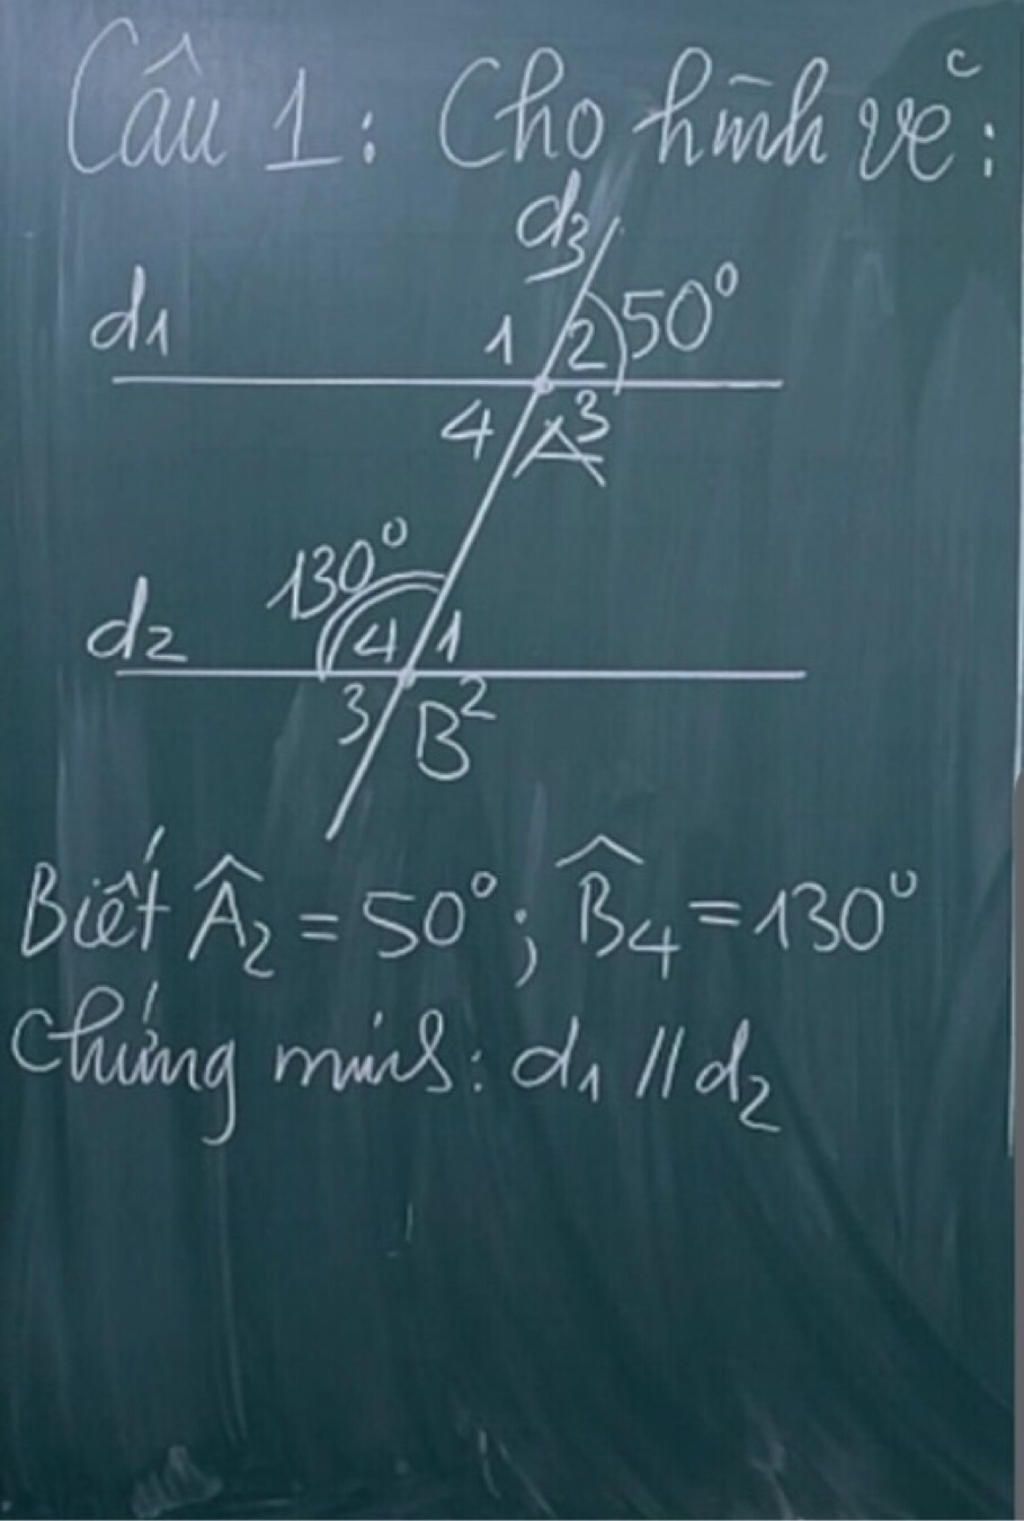 Câu 1: Cho hình vẽ:
d3
d1
1 2 50°
4 A 3
130°
d2 4 1
3 B 2
Biết Â2 = 50°; B̂4 = 130°
Chứng minh: d1 // d2